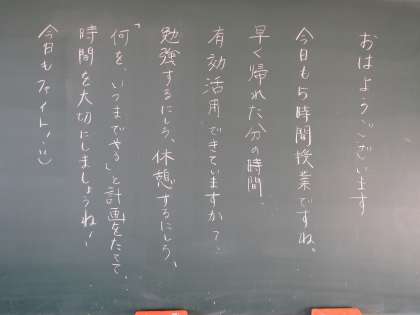 おはようございます
今日も5時間授業ですね。
早く帰れた分の時間、
有効活用できていますか？
勉強するにしろ、休憩するにしろ、
「何を、いつまでやる」と計画をたてて、
時間を大切にしましょうね！
今日もファイト！:)